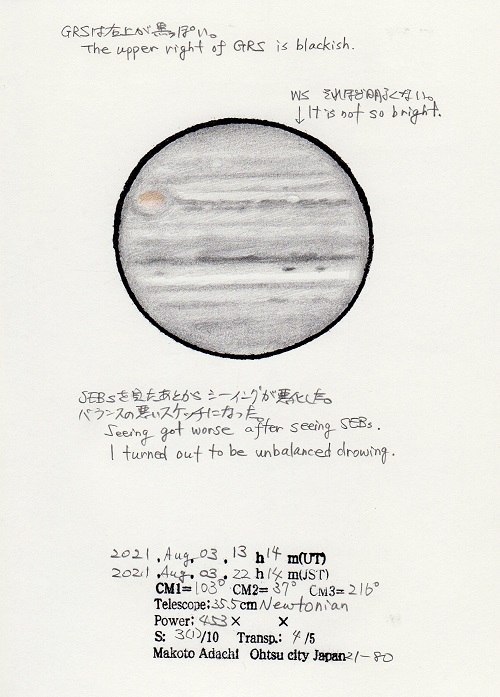 GRSは右上が黒っぽい。
The upper right of GRS is blackish.
WS それほど明るくない。
↓ It is not so bright.
SEBsを見たあとからシーイングが悪化した。
バランスの悪いスケッチになった。
Seeing got worse after seeing SEBs.
I turned out to be unbalanced drowing.
2021. Aug. 03. 13 h 14 m(UT)
2021. Aug. 03. 22 h 14 m(JST)
CM1= 103° CM2= 37° CM3= 216°
Telescope: 35.5cm Newtonian
Power: 453× ×
S: 3(1)/10 Transp.: 4/5
Makoto Adachi Ohtsu city Japan 21-80